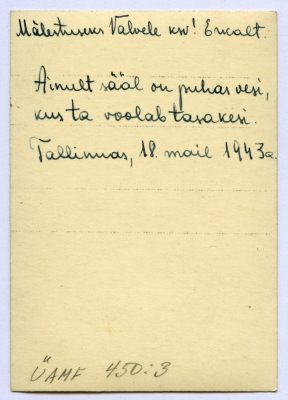 Mälestuseks Valvele ksv! Enalt.
Ainult sääl on puhas vesi,
kus ta voolab tasakesi.
Tallinnas, 18. mail 1943a.
ÜAMF 450:3